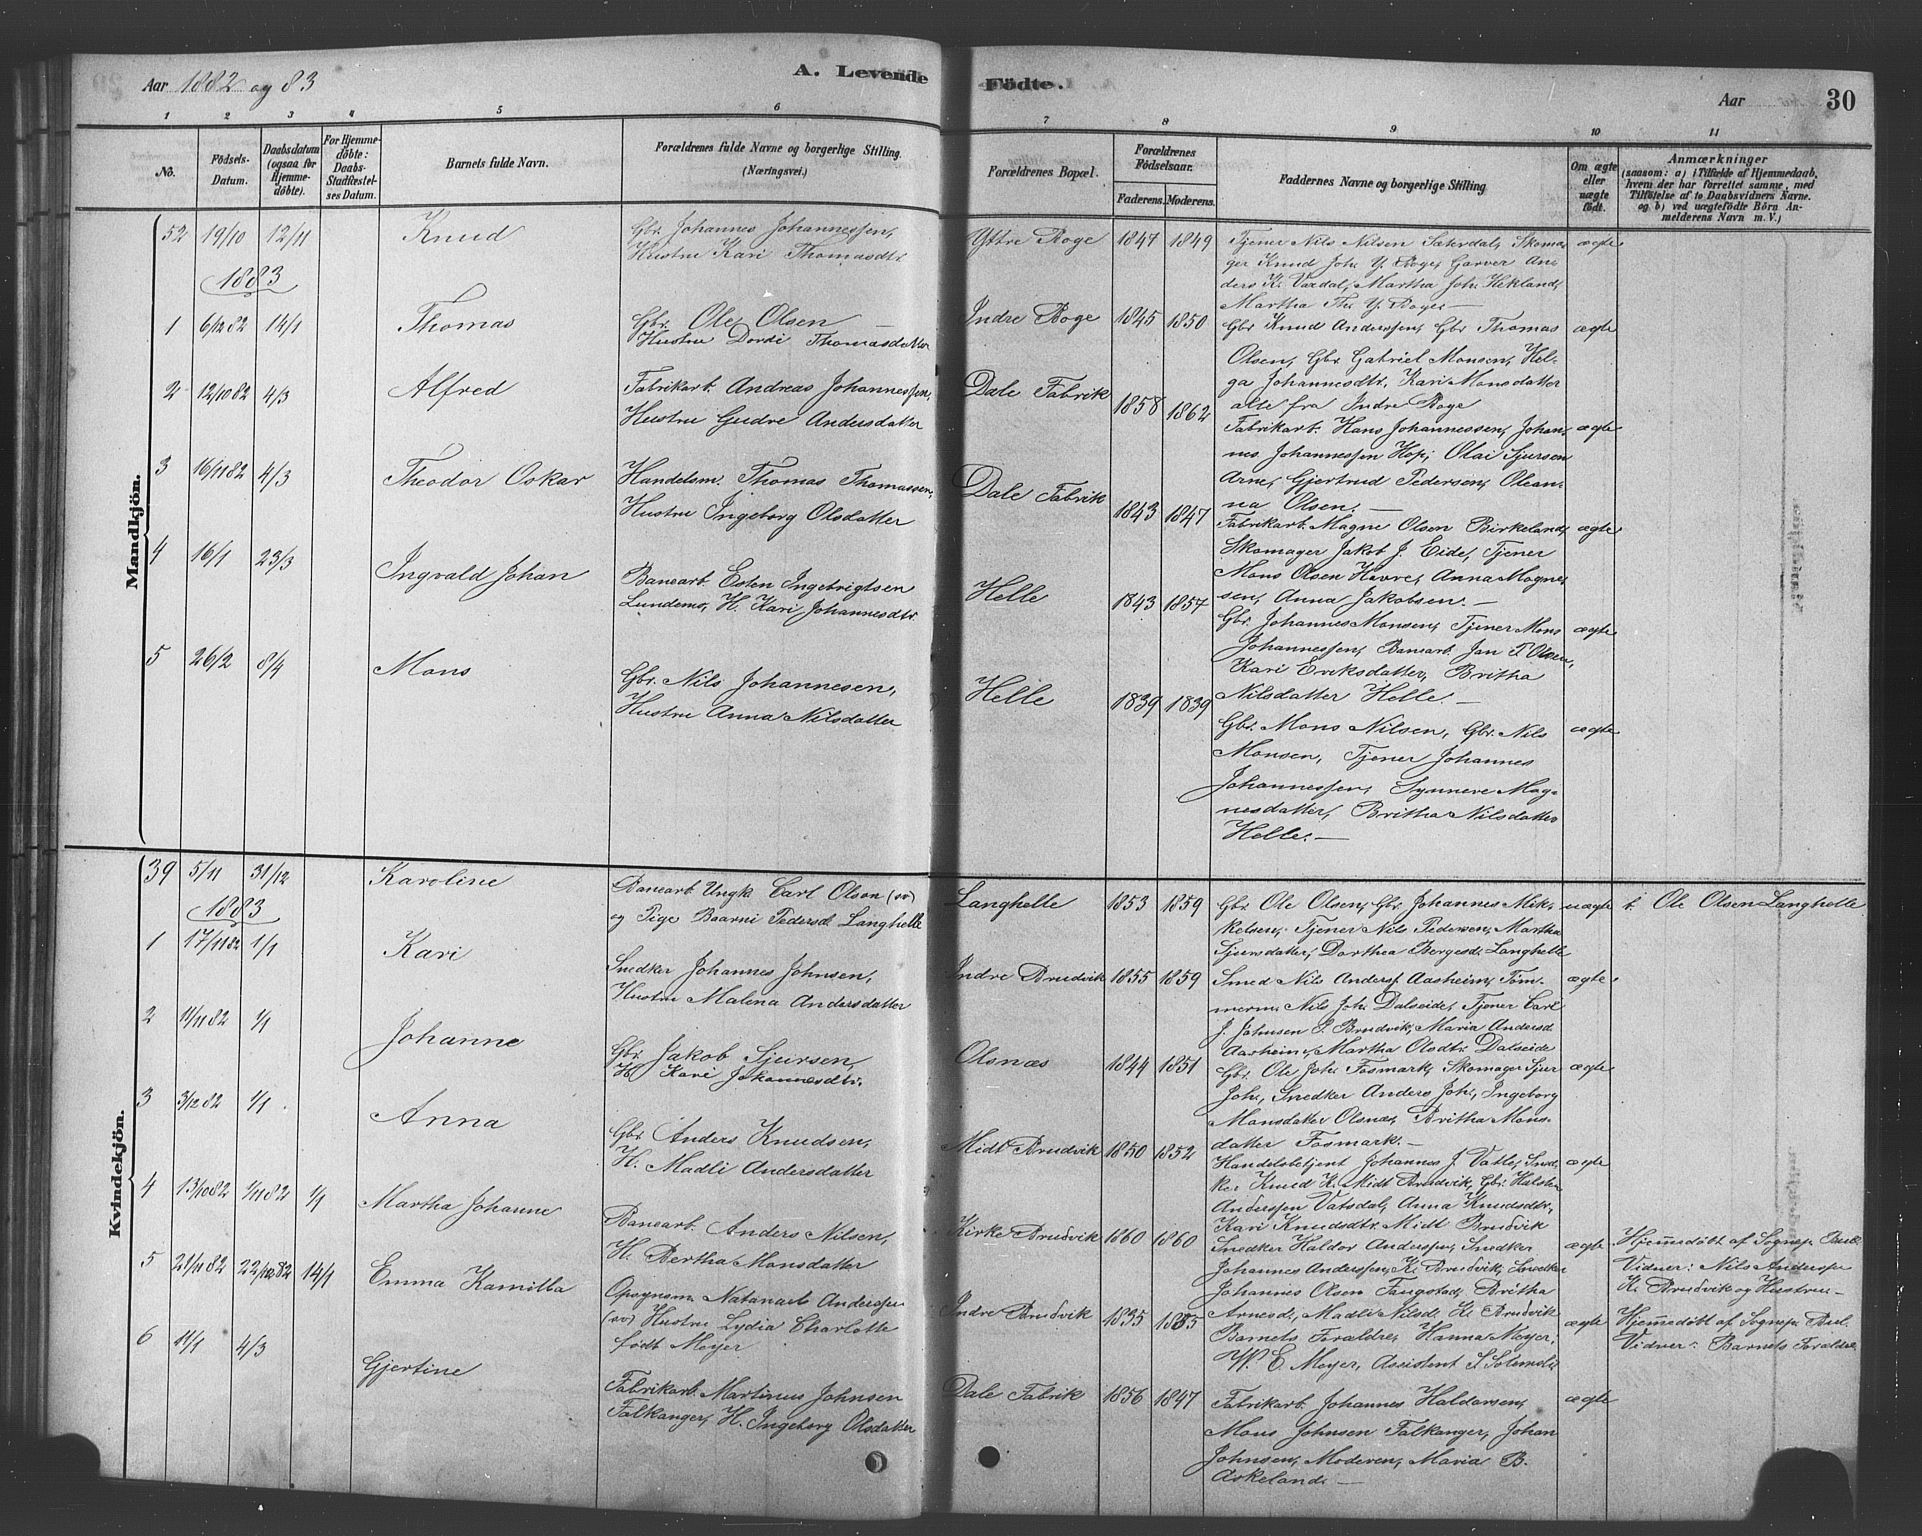 Aar 1882 og 83
A. Levende
Födte.
Aar
30
1 2 3 4 5 6 7 8 9 10 11
No.
Födsels-Datum.
Daabsdatum (ogsaa for Hjemmedöbte).
For Hjemmedöbte: Daabs-Stadfæstelses Datum.
Barnets fulde Navn.
Forældrenes fulde Navne og borgerlige Stilling.
(Næringsvei.)
Forældrenes Bopæl.
Forældrenes Födselsaar.
Faderens. Moderens.
Faddernes Navne og borgerlige Stilling
Om ægte eller uægte födt.
Anmærkninger
(saasom: a) i Tilfælde af Hjemmedaab, hvem der har forrettet samme, med Tilföielse af to Daabsvidners Navne, og b) ved uægtefödte Börn Anmelderens Navn m. V.)
Mandkjön.
52 19/10 12/11 Knud
Gbr. Johannes Johannessen,
Hustru Kari Thomasdtr.
Yttre Boge 1847 1849
Tjener Nils Nilsen Sæterdal, Skoma-
ger Knud Joh. Y. Boge, Garver An-
ders K. Vardal, Martha Joh. Hekland,
Martha Th. Y. Boge
ægte
1883
1 6/12 82 14/1 Thomas
Gbr. Ole Olsen
Hustru Dordi Thomasdatter
Indre Boge 1845 1850
Gbr. Knud Anderssen, Gbr. Thomas
Olsen, Gbr. Gabriel Monsen, Hel-
ga Johannesdtr. Kari Monsdatter
alle fra Indre Boge
ægte
2 12/10 82 4/3 Alfred
Fabrikarb. Andreas Johannessen,
Hustru Gudve Andersdatter
Dale Fabrik 1858 1862
Fabrikarb. Hans Johannessen, Johan-
nes Johannessen Hop, Olai Sjursen
Arne, Gjertrud Pedersen, Olean-
na Olsen.
ægte
3 16/11 82 4/3 Theodor Oskar
Handelsm. Thomas Thomassen,
Hustru Ingeborg Olsdatter
Dale Fabrik 1843 1847
Fabrikarb. Magne Olsen Birkeland,
Skomager Jakob J. Eide, Tjener
Mons Olsen Havre, Anna Magne-
sen, Anna Jakobsen.
ægte
4 16/1 23/3 Ingvald Johan
Banearb. Esten Ingebrigtsen
Lundemo, H. Kari Johannesdtr.
Helle 1843 1857
Gbr. Johannes Monsen, Tjener Mons
Johannessen, Banearb. Jan P. Olsen,
Kari Eriksdatter, Britha
Nilsdatter Helle.
ægte
5 26/2 8/4 Mons
Gbr. Nils Johannesen,
Hustru Anna Nilsdatter
Helle 1839 1839
Gbr. Mons Nilsen, Gbr. Nils
Monsen, Tjener Johannes
Johannessen, Synneve Mag-
nesdatter, Britha Nilsdatter
Helle.
ægte
Kvindekjön.
39 5/11 31/12 Karoline
Banearb. Ungk. Carl Olson (sv)
og Pige Baarni Pedersd. Langhelle
Langhelle 1853 1859
Gbr. Ole Olsen, Gbr. Johannes Mik-
kelsen, Tjener Nils Pedersen, Martha
Sjursdatter, Dorthea Bergesd. Langhelle
uægte
b. Ole Olsen Langhelle
1883
1 17/11 82 1/1 Kari
Snedker Johannes Johnsen,
Hustru Malena Andersdatter
Indre Brudvik 1855 1859
Smed Nils Anderss. Aasheim, Töm-
merm. Nils Joh. Dalseide, Tjener Carl
J. Johnsen I. Brudvik, Maria Andersd.
Aasheim, Martha Olsdtr. Dalseide
ægte
2 11/11 82 1/1 Johanne
Gbr. Jakob Sjursen,
H. Kari Johannesdtr.
Olsnæs 1844 1851
Gbr. Ole Joh. Fosmark, Skomager Sjur
Joh., Snedker Anders Joh., Ingeborg
Monsdatter Olsnæs, Britha Mons-
datter Fosmark.
ægte
3 3/12 82 1/1 Anna
Gbr. Anders Knudsen,
H. Madli Andersdatter
Midt Brudvik 1850 1852
Handelsbetjent Johannes J. Vatle, Sned-
ker Knud K. Midt Brudvik, Gbr. Halsten
Anderssen Vatsdal, Anna Knudsdtr.,
Kari Knudsdtr. Midt Brudvik
ægte
4 13/10 82 1/11 82 1/1 Martha Johanne
Banearb. Anders Nilsen,
H. Bertha Monsdatter
Kirke Brudvik 1860 1860
Snedker Haldor Anderssen, Snedker
Johannes Anderssen, K. Brudvik, Snedker
Johannes Olsen Tangstad, Britha
Arnesd., Madli Nilsd. K. Brudvik
ægte
Hjemmedöbt af Sognepr.
Vidner: Nils Anderssen
K. Brudvik og Hustru
5 21/11 82 22/12 82 14/1 Emma Kamilla
Opsynsm. Natanael Anderssen
(sv) Hustru Lydia Charlotte
födt Meyer
Indre Brudvik 1835 1835
Barnets Foraldre, Hanna Meyer,
W. E. Meyer, Assistent
ægte
Hjemedöbt af Sognepr.
Vidner: Barnets Foraldre
6 11/1 4/3 Gjertine
Fabrikarb. Martinus Johnsen
Falkanger, H. Ingeborg Olsdatter
Dale Fabrik 1856 1847
Fabrikarb. Johannes Haldorsen,
Mons Johnsen Falkanger, Johan
Johnsen, Moderen, Maria B.
Askeland.
ægte